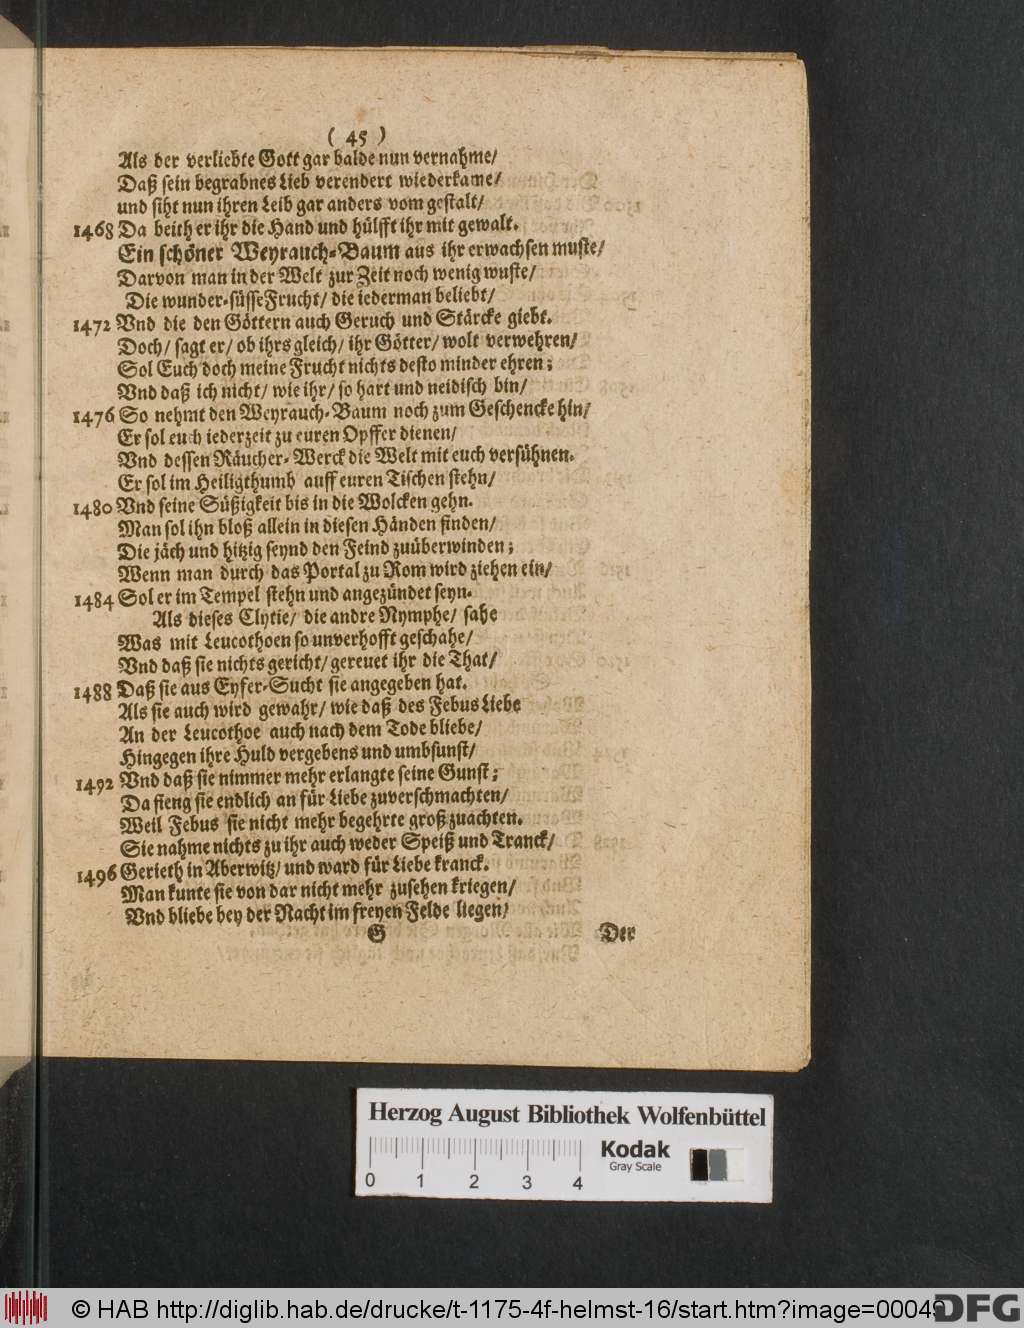 ( 45 )
Als der verliebte Gott gar balde nun vernahme/
Daß sein begrabnes Lieb verendert wiederkame/
und siht nun ihren Leib gar anders vom gestalt/
1468 Da beith er ihr die Hand und hülfft ihr mit gewalt.
Ein schöner Weyrauch-Baum aus ihr erwachsen muste/
Darvon man in der Welt zur Zeit noch wenig wuste/
Die wunder-süsse Frucht/ die iederman beliebt/
1472 Vnd die den Göttern auch Geruch und Stärcke giebt.
Doch/ sagt er/ ob ihrs gleich/ ihr Götter/ wolt verwehren/
Sol Euch doch meine Frucht nichts desto minder ehren;
Vnd daß ich nicht/ wie ihr/ so hart und neidisch bin/
1476 So nehmt den Weyrauch-Baum noch zum Geschencke hin/
Er sol euch iederzeit zu euren Opffer dienen/
Vnd dessen Räucher-Werck die Welt mit euch versühnen.
Er sol im Heiligthumb auff euren Tischen stehn/
1480 Vnd seine Süßigkeit bis in die Wolcken gehn.
Man sol ihn bloß allein in diesen Händen finden/
Die jäch und hitzig seynd den Feind zuüberwinden;
Wenn man durch das Portal zu Rom wird ziehen ein/
1484 Sol er im Tempel stehn und angezündet seyn.
Als dieses Clytie/ die andre Nymphe/ sahe
Was mit Leucothoen so unverhofft geschahe/
Vnd daß sie nichts gericht/ gereuet ihr die That/
1488 Daß sie aus Eyfer-Sucht sie angegeben hat.
Als sie auch wird gewahr/ wie daß des Febus Liebe
An der Leucothoe auch nach dem Tode bliebe/
Hingegen ihre Huld vergebens und umbsunst/
1492 Vnd daß sie nimmer mehr erlangte seine Gunst;
Da fieng sie endlich an für Liebe zuverschmachten/
Weil Febus sie nicht mehr begehrte groß zuachten.
Sie nahme nichts zu ihr auch weder Speiß und Tranck/
1496 Gerieth in Aberwitz/ und ward für Liebe kranck.
Man kunte sie von dar nicht mehr zusehen kriegen/
Vnd bliebe bey der Nacht im freyen Felde liegen/
G Der
Herzog August Bibliothek Wolfenbüttel
Kodak
Gray Scale
0 1 2 3 4
© HAB http://diglib.hab.de/drucke/t-1175-4f-helmst-16/start.htm?image=00049
DFG